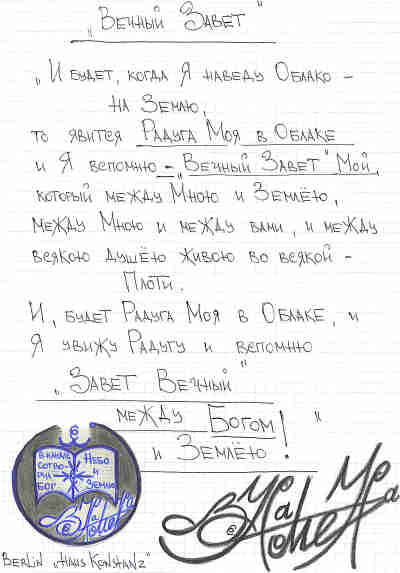 „Вечный Завет“
„И будет, когда Я наведу Облако –
на Землю,
то явится Радуга Моя в Облаке
и Я вспомню – „Вечный Завет“ Мой,
который между Мною и Землёю,
между Мною и между вами, и между
всякою душёю живою во всякой –
Плоти.
И, будет Радуга Моя в Облаке, и
Я увижу Радугу и вспомню
„Завет Вечный“
между Богом
и Землёю!“
В начале
сотво-
рил
Бог
Небо
и
Землю
Berlin „Haus Konstanz“